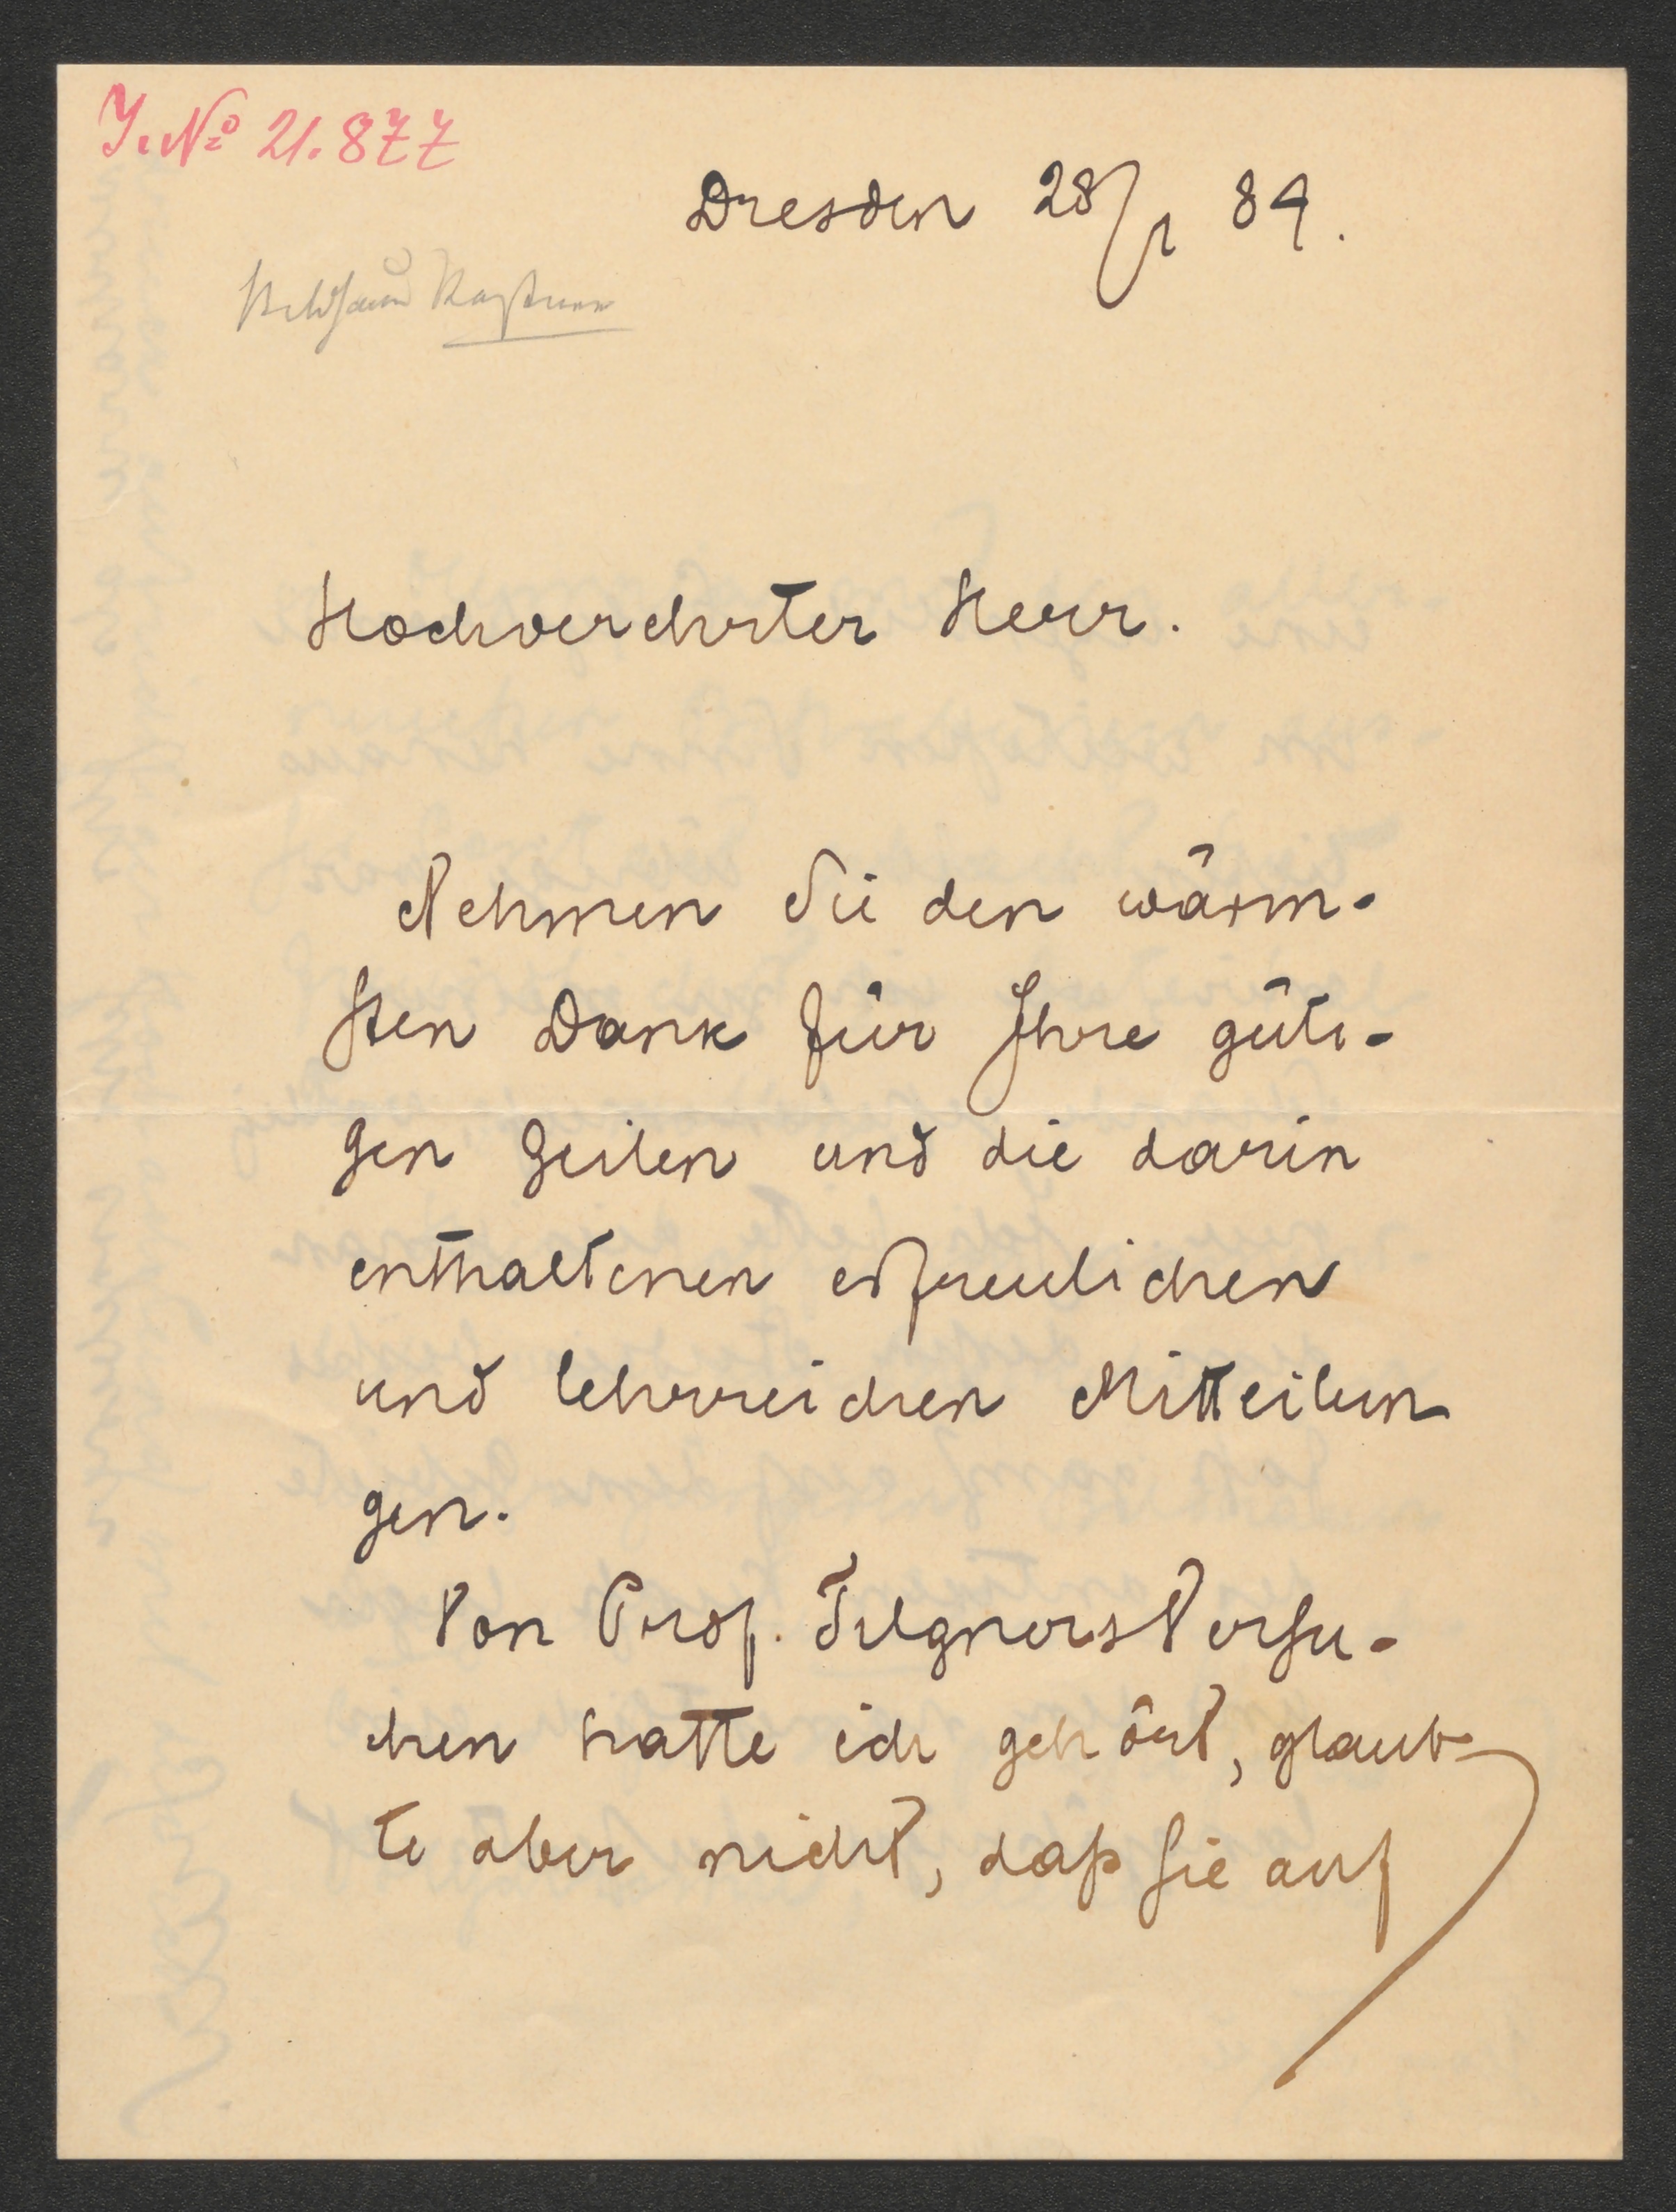 J. No 21.877
Dresden 28/1 84.
Hochverehrter Herr.
Nehmen Sie den wärm-
sten Dank für Ihre güti-
gen Zeilen und die darin
enthaltenen erfreulichen
und lehrreichen Mitteilun-
gen.
Von Prof. Tilgners Versu-
chen hatte ich gehört, glaub-
te aber nicht, daß sie auf